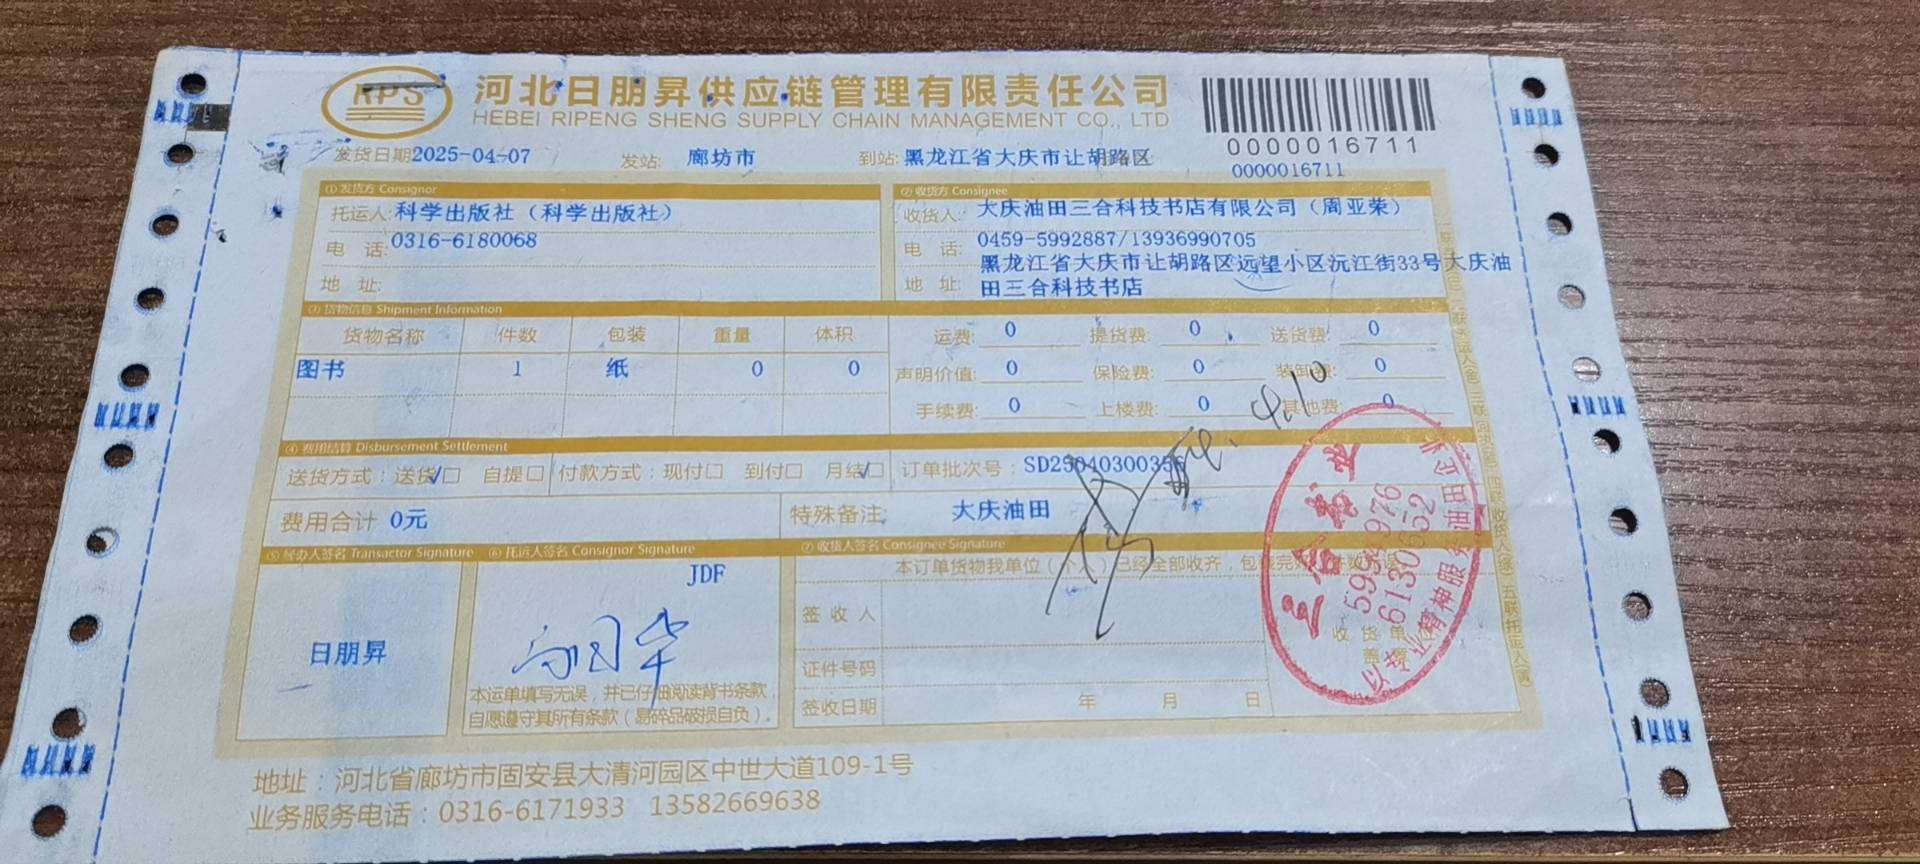 RPS 河北日朋昇供应链管理有限责任公司
HEBEI RIPENG SHENG SUPPLY CHAIN MANAGEMENT CO., LTD
0000016711
发货日期2025-04-07 发站: 廊坊市 到站: 黑龙江省大庆市让胡路区 0000016711
①发货方 Consignor ②收货方 Consignee
托运人:科学出版社（科学出版社） 收货人: 大庆油田三合科技书店有限公司（周亚荣）
电 话:0316-6180068 电 话: 0459-5992887/13936990705
地 址: 地 址: 黑龙江省大庆市让胡路区远望小区沅江街33号大庆油
田三合科技书店
③货物信息 Shipment Information
货物名称 件数 包装 重量 体积 运费: 0 提货费: 0 送货费: 0
图书 1 纸 0 0 声明价值: 0 保险费: 0 装卸费: 0
手续费: 0 上楼费: 0 其他费: 0
4.10
④费用结算 Disbursement Settlement
送货方式: 送货☑ 自提□ 付款方式: 现付□ 到付□ 月结☑ 订单批次号: SD25040300356
费用合计 0元 特殊备注: 大庆油田
⑤经办人签名 Transactor Signature ⑥托运人签名 Consignor Signature ⑦收货人签名 Consignee Signature
JDF 本订单货物我单位（个人）已经全部收齐，包装完好，件数无误
日朋昇
签收人
证件号码
签收日期 年 月 日
收货单位
盖章
本运单填写无误，并已仔细阅读背书条款，
自愿遵守其所有条款（易碎品破损自负）。
三合书业
5994976
6130652
地址：河北省廊坊市固安县大清河园区中世大道109-1号
业务服务电话：0316-6171933 13582669638